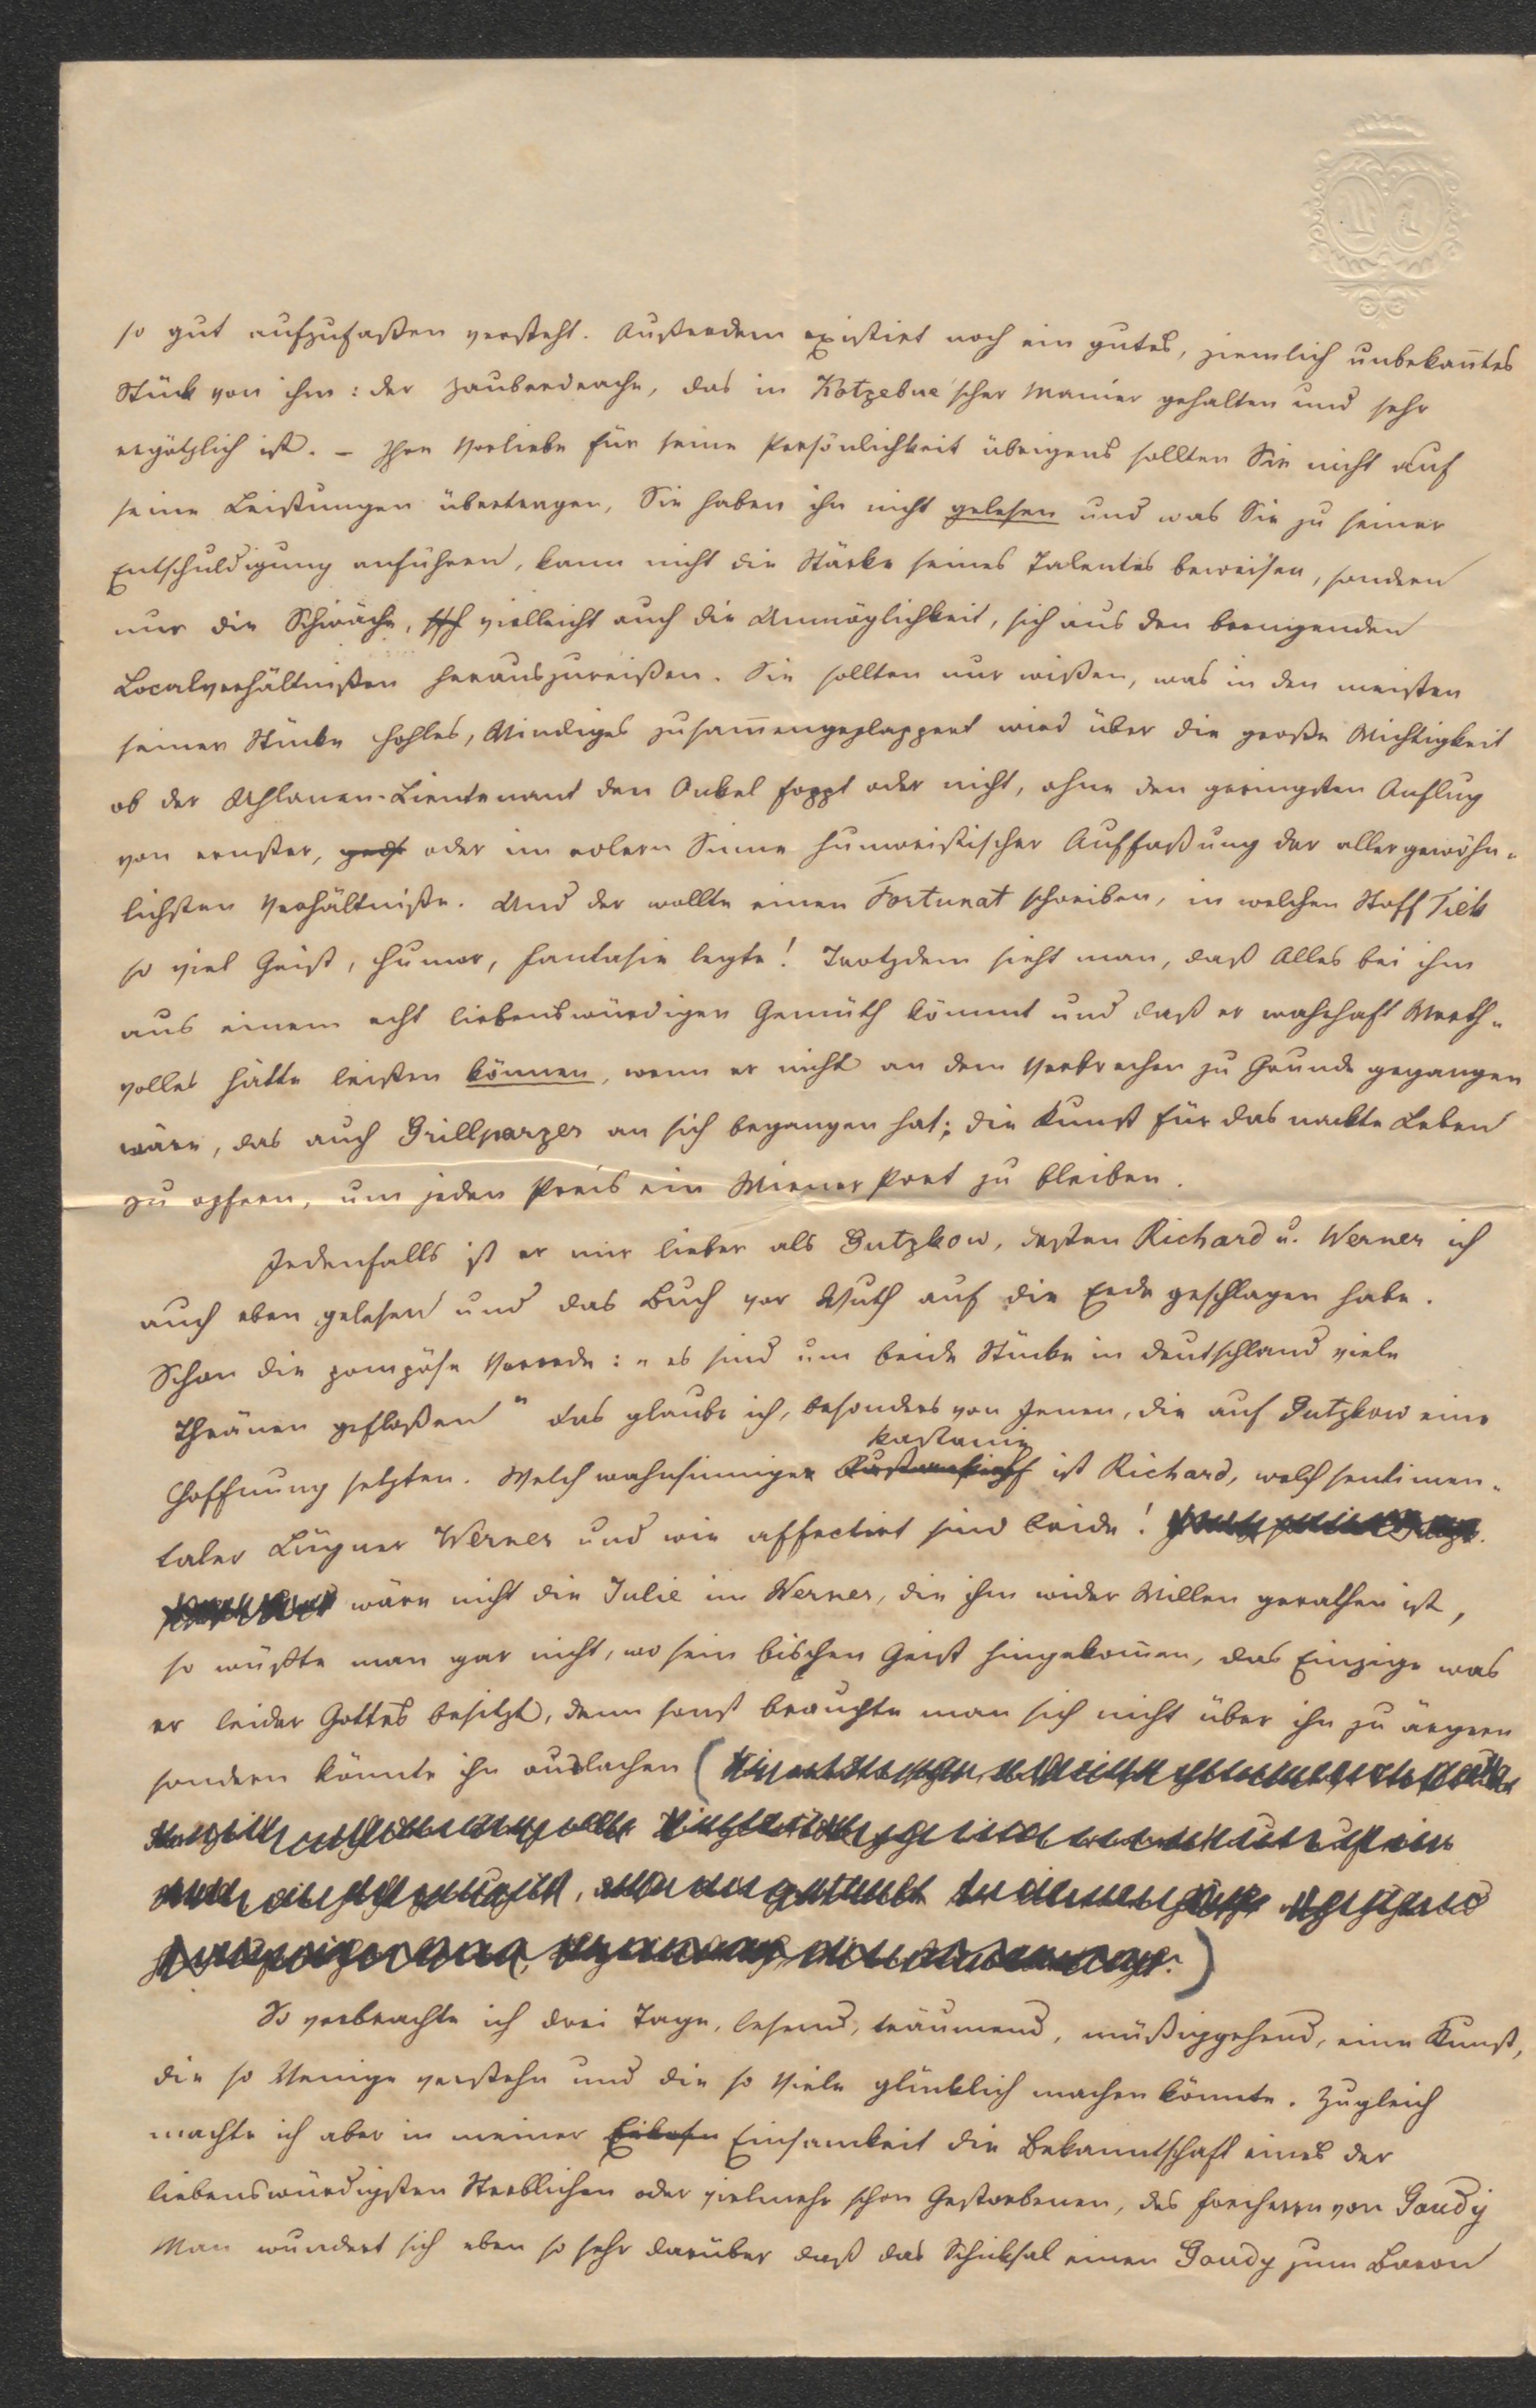 so gut aufzufaßen versteht. Außerdem existirt noch ein gutes, ziemlich unbekan̄tes
Stück von ihm: der Zauberdrache, das in Kotzebue'scher Manier gehalten und sehr
ergötzlich ist. – Ihre Vorliebe für seine Persönlichkeit übrigens sollten Sie nicht auf
seine Leistungen übertragen, Sie haben ihn nicht gelesen und was Sie zu seiner
Entschuldigung anführen, kann nicht die Stärke seines Talentes beweisen, sondern
nur die Schwäche, vielleicht auch die Unmöglichkeit, sich aus den beengenden
Localverhältnißen herauszureißen. Sie sollten nur wißen, was in den meisten
seiner Stücke Hohles, Windiges zusam̄engeplappert wird über die große Wichtigkeit
ob der Uhlanen-Lieutenant den Onkel foppt oder nicht, ohne den geringsten Anflug
von ernster, oder im edlern Sinne humoristischer Auffaßung der allergewöhn-
lichsten Verhältniße. Und der wollte einen Fortunat schreiben, in welchen Stoff Tiek
so viel Geist, Humor, Fantasie legte! Trotzdem sieht man, daß Alles bei ihm
aus einem echt liebenswürdigen Gemüth kömmt und daß er wahrhaft Werth-
volles hätte leisten können, wenn er nicht an dem Verbrechen zu Grunde gegangen
wäre, das auch Grillparzer an sich begangen hat; die Kunst für das nackte Leben
zu opfern, um jeden Preis ein Wiener Poet zu bleiben.
Jedenfalls ist er mir lieber als Gutzkow, deßen Richard u. Werner ich
auch eben gelesen und das Buch vor Wuth auf die Erde geschlagen habe.
Schon die pompöse Vorrede: „es sind um beide Stücke in Deutschland viele
Thränen gefloßen" das glaube ich, besonders von Jenen, die auf Gutzkow eine
Hoffnung setzten. Welch wahnsinniger ist Richard, welch sentimen-
taler Lügner Werner und wie affectirt sind beide!
wäre nicht die Julie im Werner, die ihm wider Willen gerathen ist,
so wüßte man gar nicht, wo sein bischen Geist hingekom̄en, das Einzige was
er leider Gottes besitzt, denn sonst brauchte man sich nicht über ihn zu ärgern
sondern könnte ihn auslachen (
)
So verbrachte ich drei Tage, lesend, träumend, müßiggehend, eine Kunst,
die so Wenige verstehn und die so Viele glücklich machen könnte. Zugleich
machte ich aber in meiner Einsamkeit die Bekanntschaft eines der
liebenswürdigsten Sterblichen oder vielmehr schon Gestorbenen, des Freiherrn von Gaudy
Man wundert sich eben so sehr darüber daß das Schicksal einen Gaudy zum Baron